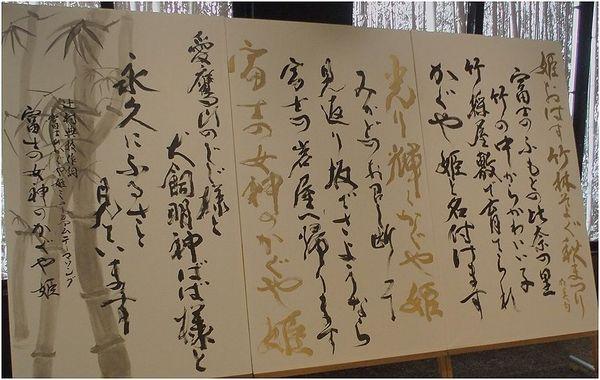 姫おはす竹林そよぐ秋まつり
富士のふもとの比奈の里
竹の中からかわいい子
竹採屋敷で育てられ
かぐや姫と名付けます
光り輝くかぐや姫
みかどのお召し断って
見返り坂でさようなら
富士の岩屋へ帰ります
富士の女神のかぐや姫
愛鷹山のじじ様と
犬飼明神ばば様と
永久にふるさと
見ています
富士の女神のかぐや姫